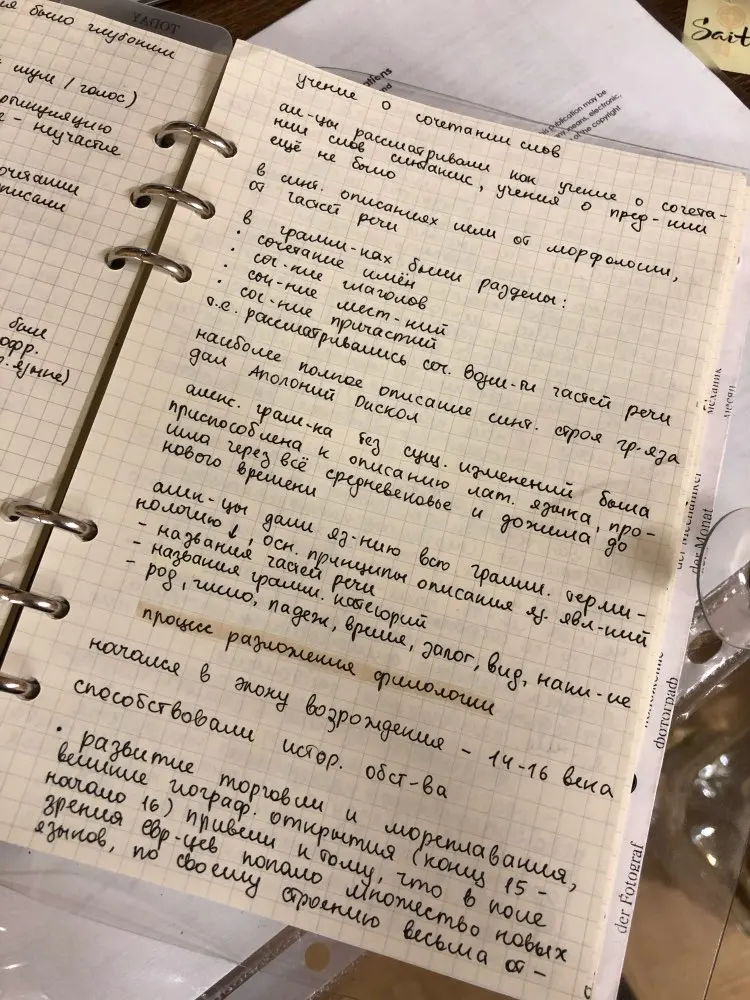 я было глубокий
шум / голос)
- неучастие
описали
были
TODAY
учение о сочетании слов
ал-цы рассматривали как учение о сочета-
нии слов синтаксис, учения о пред-нии
ещё не было
в синт. описаниях шли от морфологии,
от частей речи
в грамм-ках были разделы:
· сочетание имён
· соч-ние глаголов
· соч-ние мест-ний
· соч-ние причастий
т.е. рассматривались соч.
частей речи
наиболее полное описание синт. строя гр-яза
дал Аполоний Дискол
алекс. грам-ка без сущ. изменений была
приспособлена к описанию лат. языка, про-
шла через всё средневековье и дожила до
нового времени
алек-цы дали яз-нию всю грамм. терми-
нологию ↓, осн. принципы описания яз. явл-ний
- названия частей речи
- названия грамм. категорий
- род, число, падеж, время, залог, вид, накл-ие
процесс разложения филологии
начался в эпоху возрождения - 14-16 века
способствовали истор. обст-ва
· развитие торговли и мореплавания,
великие географ. открытия (конец 15 -
начало 16) привели к тому, что в поле
зрения евр-цев попало множество новых
языков, по своему строению весьма от-
s publication may be
means, electronic,
of the copyright
Sait
механик
месяц
der Mechaniker
der Monat
фотограф
der Fotograf